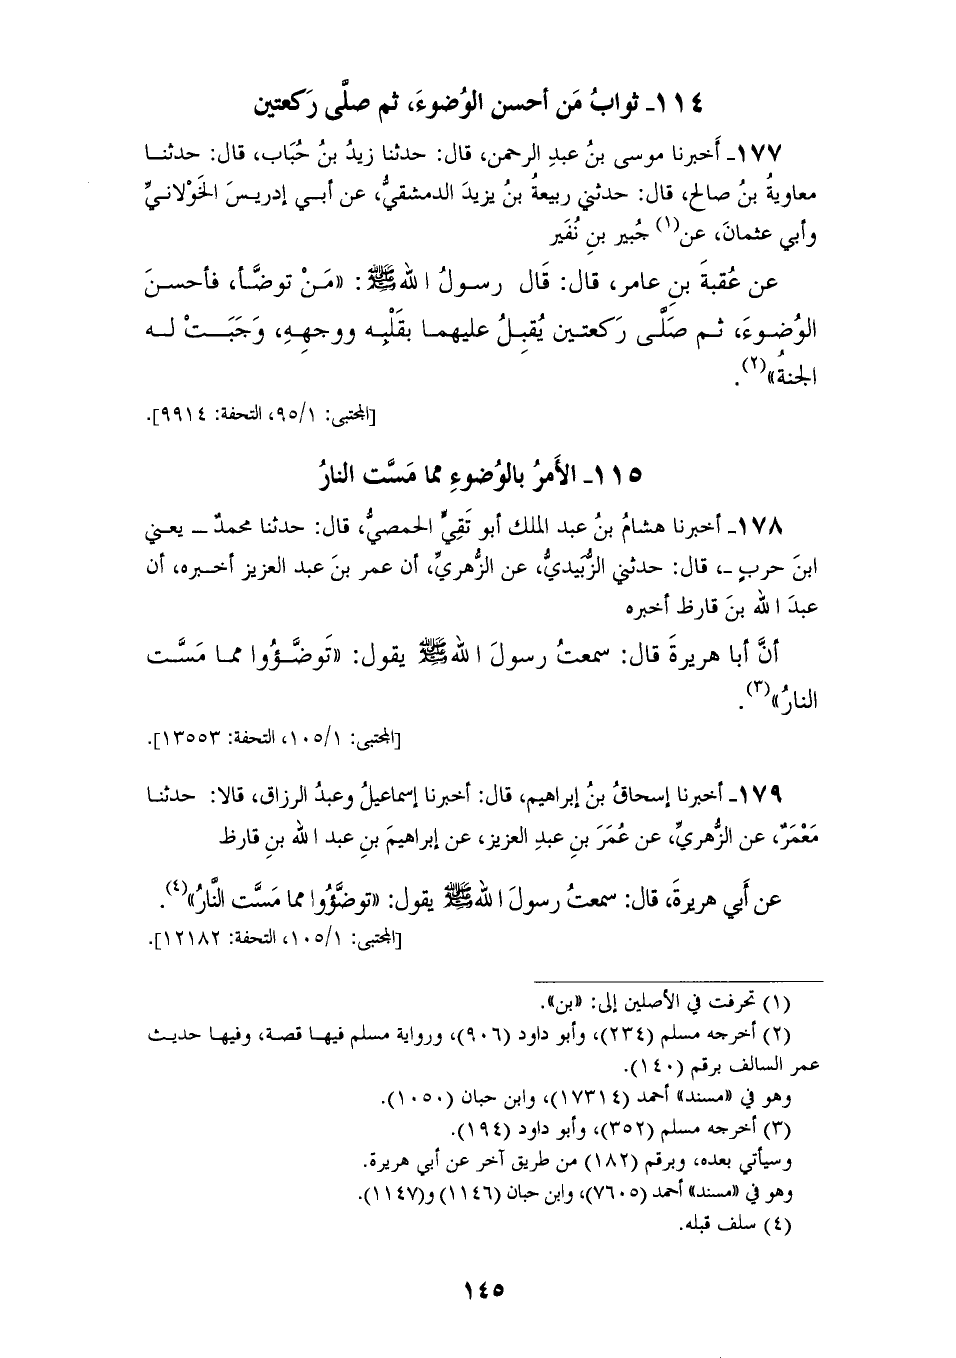 ١١٤ـ ثوابُ مَن أحسن الوُضوءَ، ثم صلَّى رَكعتين
١٧٧ـ أَخبرنا موسى بنُ عبدِ الرحمن، قال: حدثنا زيدُ بنُ حُبَاب، قال: حدثنا
معاويةُ بنُ صالح، قال: حدثني ربيعةُ بنُ يزيدَ الدمشقيُّ، عن أبي إدريسَ الخَوْلانيِّ
وأبي عثمانَ، عن(١) جُبير بنِ نُفَير
عن عُقبةَ بنِ عامر، قال: قَال رسولُ اللهﷺ: «مَنْ توضَّأ، فأحسنَ
الوُضوءَ، ثم صَلَّى رَكعتين يُقبِلُ عليهما بقَلْبِه ووجهِهِ، وَجَبَتْ له
الجنةُ»(٢).
[المجتبى: ٩٥/١، التحفة: ٩٩١٤].
١١٥ـ الأَمرُ بالوُضوءِ مما مَسَّت النارُ
١٧٨ـ أخبرنا هشامُ بنُ عبد الملك أبو تَقِيٍّ الحمصيُّ، قال: حدثنا محمدٌ ـ يعني
ابنَ حربٍ ـ، قال: حدثني الزُّبَيديُّ، عن الزُّهريِّ، أن عمر بنَ عبد العزيز أخبره، أن
عبدَ اللهِ بنَ قارظ أخبره
أنَّ أبا هريرةَ قال: سمعتُ رسولَ اللهﷺ يقول: «تَوضَّؤُوا مما مَسَّت
النارُ»(٣).
[المجتبى: ١٠٥/١، التحفة: ١٣٥٥٣].
١٧٩ـ أخبرنا إسحاقُ بنُ إبراهيم، قال: أخبرنا إسماعيلُ وعبدُ الرزاق، قالا: حدثنا
مَعْمَرٌ، عن الزُّهريِّ، عن عُمَرَ بنِ عبدِ العزيز، عن إبراهيمَ بنِ عبد اللهِ بنِ قارظ
عن أَبي هريرةَ، قال: سمعتُ رسولَ اللهﷺ يقول: «توضَّؤُوا مما مَسَّت النَّارُ»(٤).
[المجتبى: ١٠٥/١، التحفة: ١٢١٨٢].
(١) تحرفت في الأصلين إلى: «بن».
(٢) أخرجه مسلم (٢٣٤)، وأبو داود (٩٠٦)، ورواية مسلم فيها قصة، وفيها حديث
عمر السالف برقم (١٤٠).
وهو في «مسند» أحمد (١٧٣١٤)، وابن حبان (١٠٥٠).
(٣) أخرجه مسلم (٣٥٢)، وأبو داود (١٩٤).
وسيأتي بعده، وبرقم (١٨٢) من طريق آخر عن أبي هريرة.
وهو في «مسند» أحمد (٧٦٠٥)، وابن حبان (١١٤٦) و(١١٤٧).
(٤) سلف قبله.
١٤٥